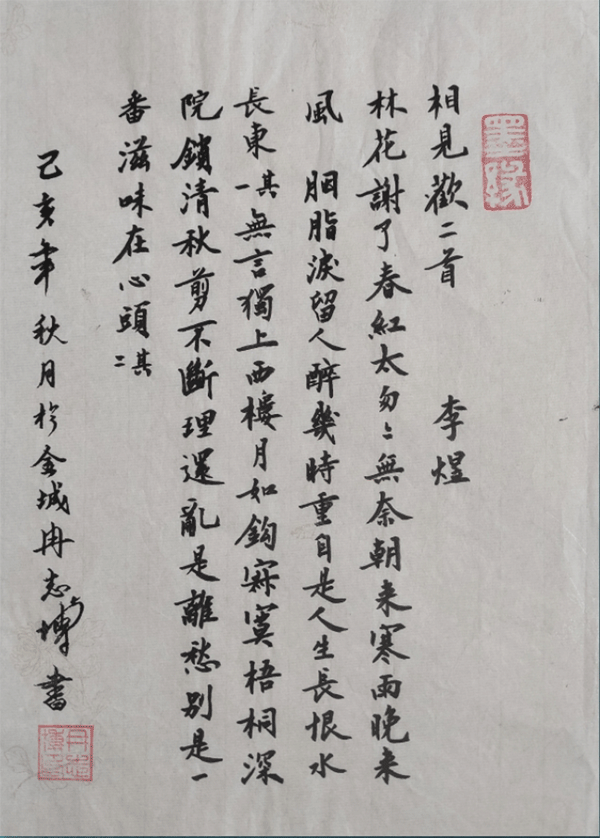 墨緣
相見歡二首 李煜
林花謝了春紅太匆匆無奈朝来寒雨晚来
風 胭脂淚留人醉幾時重自是人生長恨水
長東 其一 無言獨上西樓月如鈎寂寞梧桐深
院鎖清秋剪不斷理還亂是離愁別是一
番滋味在心頭 其二
己亥年秋月於金城冉志博書
冉志博印